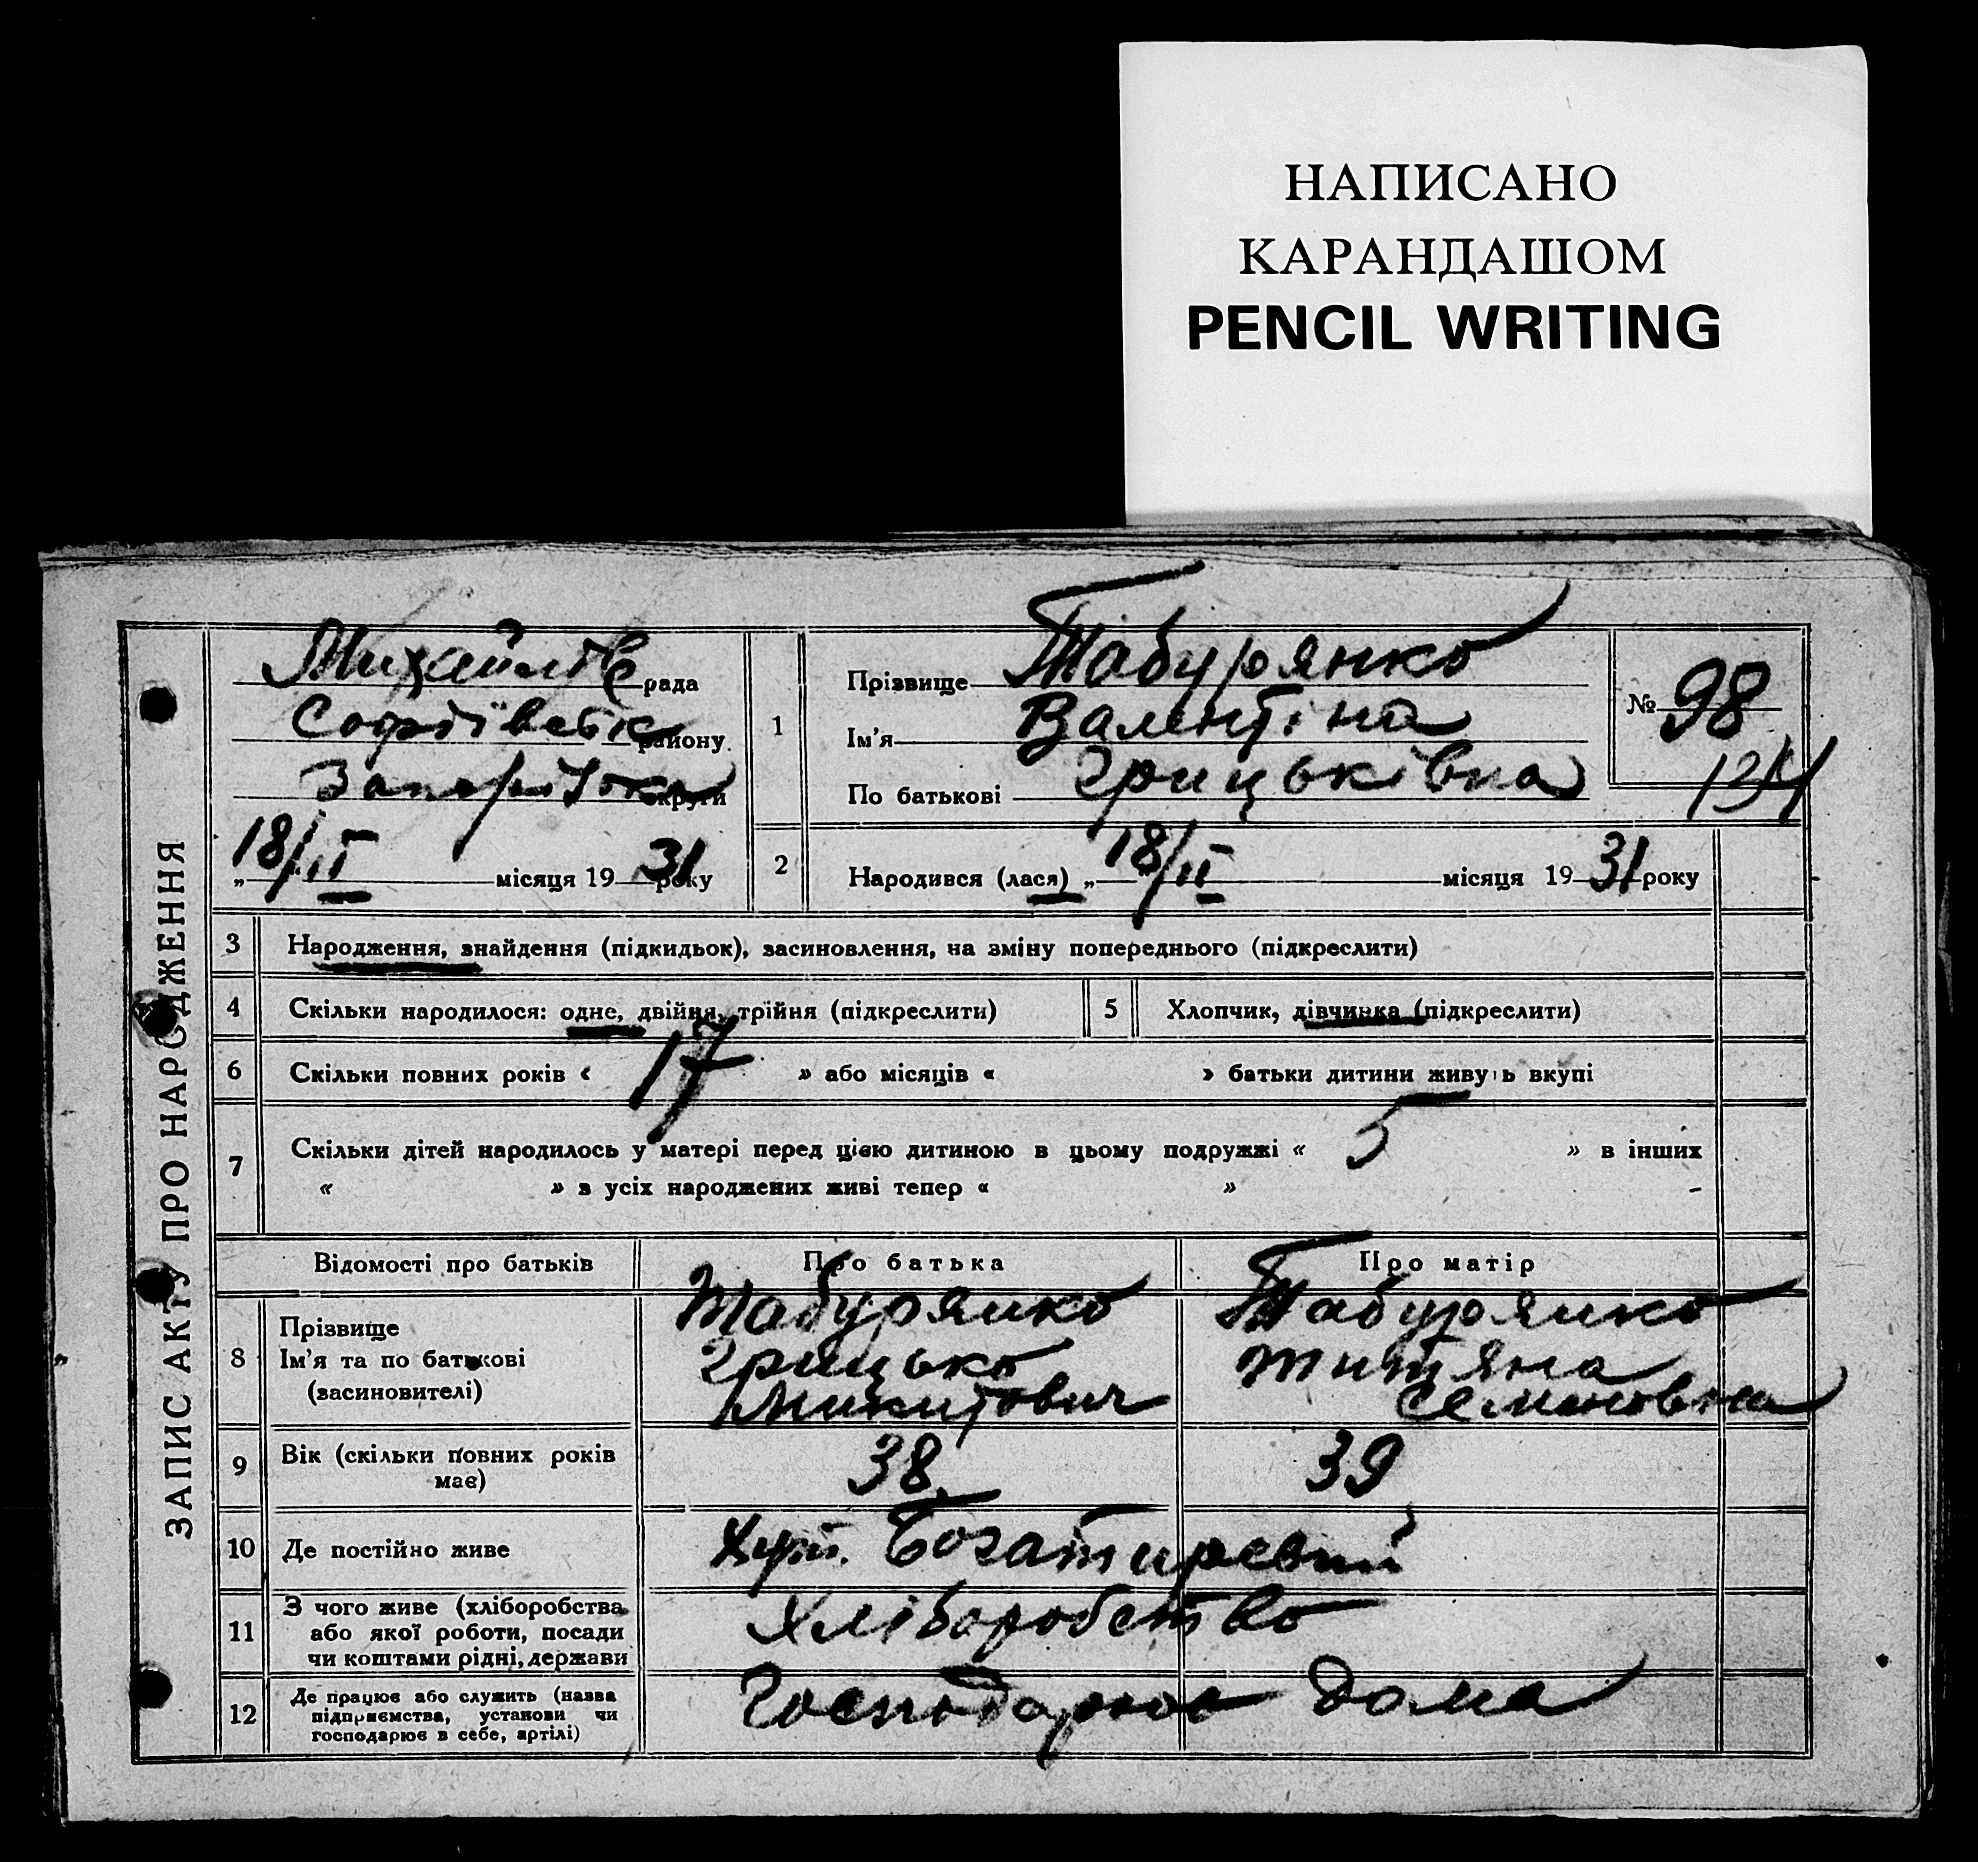 НАПИСАНО
КАРАНДАШОМ
PENCIL WRITING
ЗАПИС АКТУ ПРО НАРОДЖЕННЯ
Михайлів рада
Софіївськ району
округи
18/II місяця 19 31 року
1
Прізвище Табурянко
Ім'я Валентіна
По батькові Грицьківна
№ 98
134
2 Народився (лася) „ 18/II місяця 19 31 року
3 Народження, знайдення (підкидьок), засиновлення, на зміну попереднього (підкреслити)
4 Скільки народилося: одне, двійня, трійня (підкреслити) 5 Хлопчик, дівчинка (підкреслити)
6 Скільки повних років « 17 » або місяців « » батьки дитини живуть вкупі
7 Скільки дітей народилось у матері перед цією дитиною в цьому подружжі « 5 » в інших
« » з усіх народжених живі тепер « »
Відомості про батьків Про батька Про матір
8
Прізвище Табурянко Табурянко
Ім'я та по батькові Грицько Титяна
(засиновителі) Микитович Семеновна
9 Вік (скільки повних років має) 38 39
10 Де постійно живе Хут. Богатиревий
11 З чого живе (хліборобства
або якої роботи, посади
чи коштами рідні, держави
Хліборобство
12 Де працює або служить (назва
підприємства, установи чи
господарює в себе, артілі)
Господарює дома